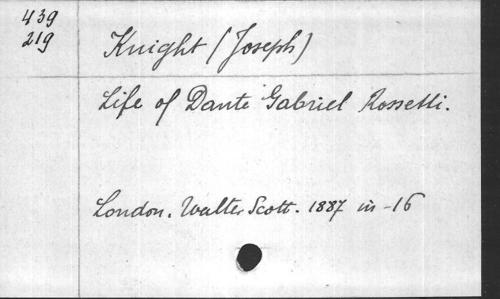 439
219
Knight (Joseph)
Life of Dante Gabriel Rossetti.
London. Walter Scott. 1887 in-16